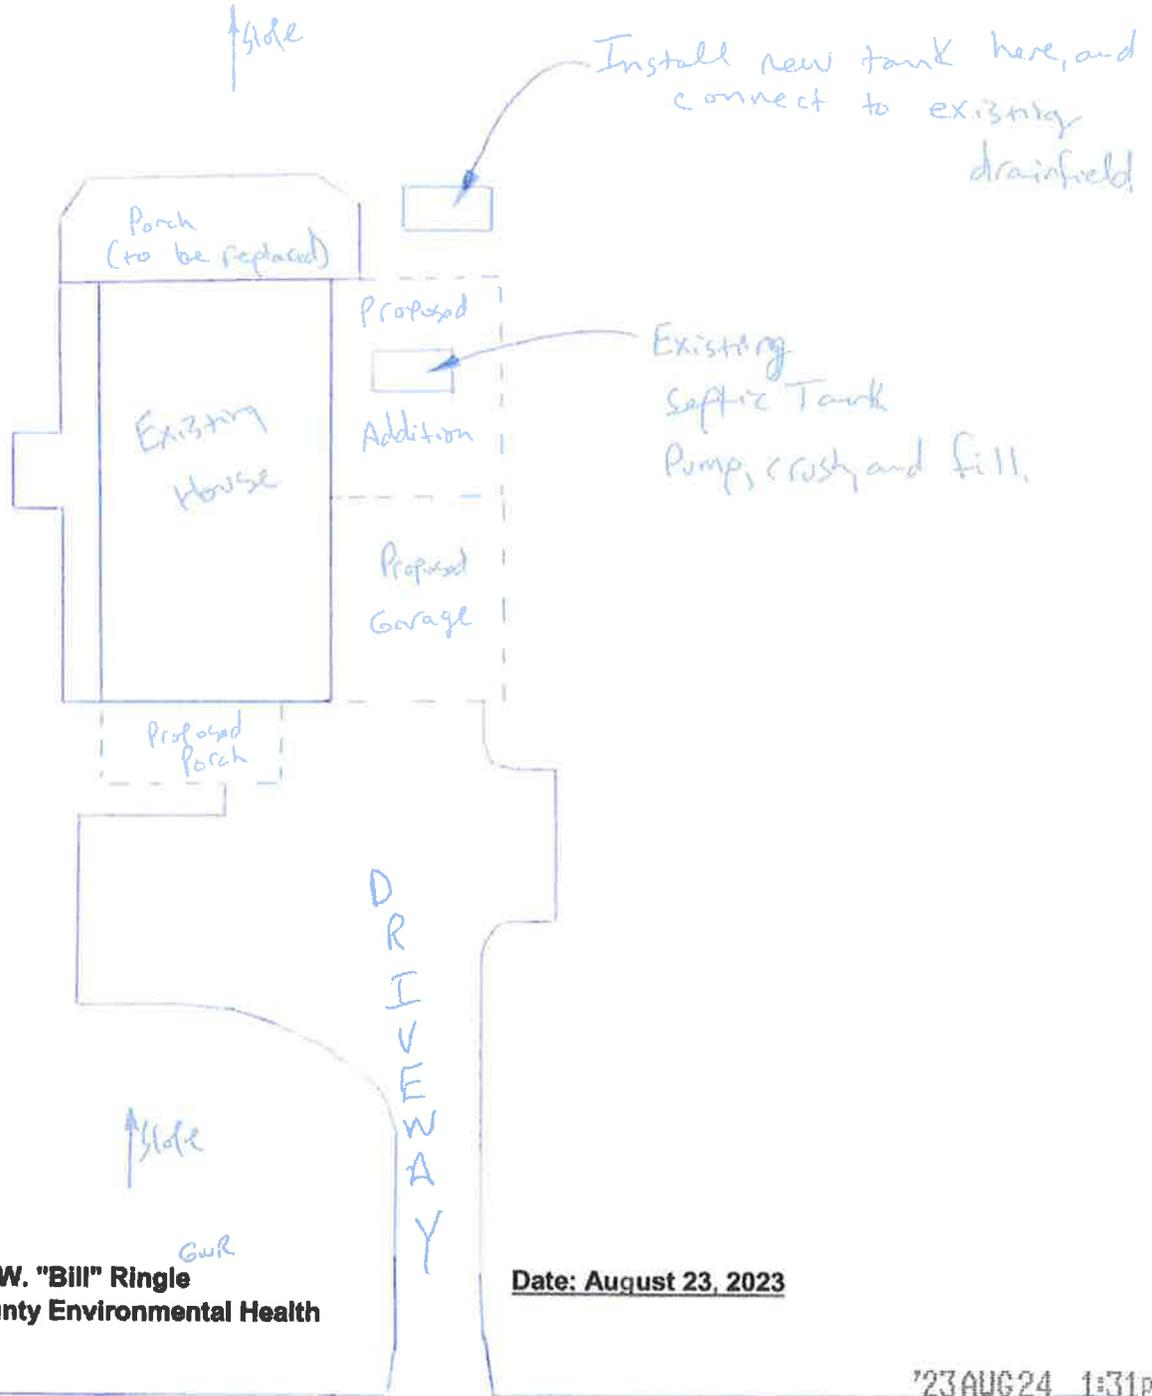 Slope
Install new tank here, and
connect to existing
drainfield
Porch
(to be replaced)
Proposed
Addition
Existing
Septic Tank
Pump, crush, and fill.
Existing
House
Proposed
Garage
Proposed
Porch
DRIVEWAY
Slope
GWR
W. "Bill" Ringle
nty Environmental Health
Date: August 23, 2023
'23AUG24 1:31P